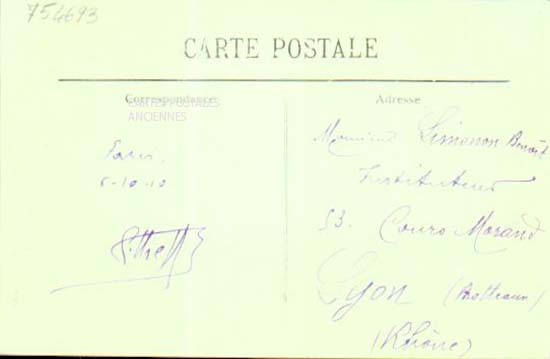 754693
CARTE POSTALE
Correspondance
CARTES POSTALES
ANCIENNES
Adresse
Paris.
6-10-10
Monsieur Simonon Benoit
Instituteur
53. Cours Morand
Lyon (Brotteaux)
(Rhône)